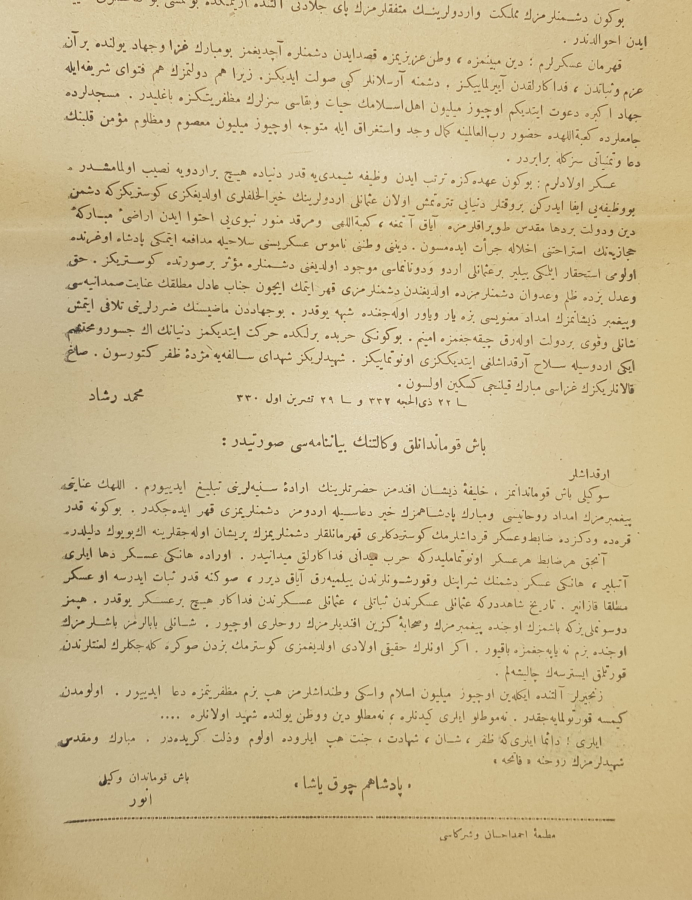 بوكون دشمنلرمزك مملكت واردولرينك متفقلرمزك پاى جلادتى آلتنده ازيلمكده بولنمسى بو
ايدن احوالدندر .
قهرمان عسكرلرم : دين مبينمزه ، وطن عزيزيمزه قصد ايدن دشمنلره آچديغمز بو مبارك غزا وجهاد يولنده بر آن
عزم وثباتدن ، فداكارلقدن آيرلمايكز . دشمنه آرسلانلر كبى صولت ايديكز . زيرا هم دولتمزك هم فتواى شريفه ايله
جهاد اكبره دعوت ايتديكم اوچيوز مليون اهل اسلامك حيات وبقاسى سزلرك مظفريتكزه باغليدر . مسجدلرده
جامعلرده كعبة اللهده حضور رب العالمينه كمال وجد واستغراق ايله متوجه اوچيوز مليون معصوم ومظلوم مؤمن قلبنك
دعا وتمنياتى سزكله برابردر .
عسكر اولادلرم : بوكون عهده كزه ترتب ايدن وظيفه شيمدى يه قدر دنياده هيچ بر اردويه نصيب اولمامشدر .
بو وظيفه يى ايفا ايدركن بر وقتلر دنيايى تتره تمش اولان عثمانلى اردولرينك خير الخلفلرى اولديغكزى كوستريكزكه دشمن
دين ودولت بر دها مقدس طوپراقلرمزه آياق آتمغه ، كعبة اللهى ومرقد منور نبوى يى احتوا ايدن اراضئ مباركۀ
حجازيه نك استراحتنى اخلاله جرأت ايده مسون . دينى وطنى ناموس عسكريسنى سلاحيله مدافعه ايتمكى پادشاه اوغرنده
اولومى استحقار ايلمكى بيلير بر عثمانلى اردو ودونانماسى موجود اولديغنى دشمنلره مؤثر بر صورتده كوستريكز . حق
وعدل بزده ظلم وعدوان دشمنلرمزده اولديغندن دشمنلرمزى قهر ايتمك ايچون جناب عادل مطلقك عنايت صمدانيه سى
وپيغمبر ذيشانمزك امداد معنويسى بزه يار وياور اوله جغنده شبهه يوقدر . بو جهاددن ماضيسنك ضررلرينى تلافى ايتمش
شانلى وقوى بر دولت اوله رق چيقه جغمزه امينم . بوكونكى حربده برلكده حركت ايتديكمز دنيانك اك جسور ومحتشم
ايكى اردوسيله سلاح آرقداشلغى ايتديككزى اونوتمايكز . شهيدلريكز شهداى سالفه يه مژدۀ ظفر كتورسون . صاغ
قالانلريكزك غزاسى مبارك قيلنجى كسكين اولسون .
سا ٢٢ ذى الحجه ٣٣٢ و سا ٢٩ تشرين اول ٣٣٠
محمد رشاد
باش قوماندانلق وكالتنك بياننامه سى صورتيدر :
ارقداشلر
سوكيلى باش قوماندانمز ، خليفۀ ذيشان افندمز حضرتلرينك ارادۀ سنيه لرينى تبليغ ايدييورم . اللهك عنايتى
پيغمبرمزك امداد روحانيسى ومبارك پادشاهمزك خير دعاسيله اردومز دشمنلريمزى قهر ايده جكدر . بوكونه قدر
قره ده ودكزده ضابط وعسكر قرداشلرمك كوستردكلرى قهرمانلقلر دشمنلريمزك پريشان اوله جقلرينه اك بويوك دليلدر.
آنجق هر ضابط هر عسكر اونوتماملیدركه حرب ميدانى فداكارلق ميدانيدر . اوراده هانكى عسكر دها ايلرى
آتيلير ، هانكى عسكر دشمنك شراپنل وقورشونلرندن ييلميه رق آياق ديرر ، صوكنه قدر ثبات ايدرسه او عسكر
مطلقا قازانير . تاريخ شاهددركه عثمانلى عسكرندن ثباتلى ، عثمانلى عسكرندن فداكار هيچ بر عسكر يوقدر . هپمز
دوشونملى يزكه باشمزك اوجنده پيغمبرمزك وصحابۀ كزين افنديلرمزك روحلرى اوچيور . شانلى بابالرمز باشلرمزك
اوجنده بزم نه ياپه جغمزه باقيور . اكر اونلرك حقيقى اولادى اولديغمزى كوسترمك بزدن صوكره كله جكلرك لعنتلرندن
قورتلق ايسترسه ك چاليشه لم .
زنجيرلر آلتنده ايكله ين اوچيوز مليون اسلام واسكى وطنداشلرمز هپ بزم مظفريتمزه دعا ايدييور . اولومدن
كيمسه قورتولمايه جقدر . نه موطلو ايلرى كيدنلره ، نه مطلو دين ووطن يولنده شهيد اولانلره ....
ايلرى ! دائما ايلرى كه ظفر ، شان ، شهادت ، جنت هپ ايلروده اولوم وذلت كريده در . مبارك ومقدس
شهيدلرمزك روحنه « فاتحه »
« پادشاهم چوق ياشا »
باش قوماندان وكيلى
انور
مطبعۀ احمد احسان وشركاسى